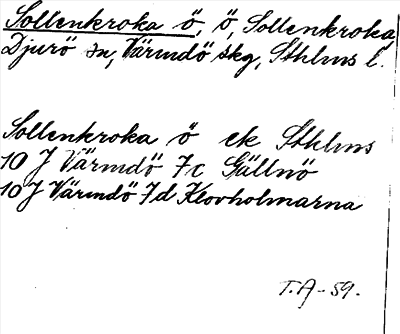 Sollenkroka ö, ö, Sollenkroka,
Djurö sn, Värmdö skg, Sthlms l.
Sollenkroka ö ek Sthlms
10 J Värmdö 7c Gällnö
10 J Värmdö 7d Klovholmarna
T.A-59.